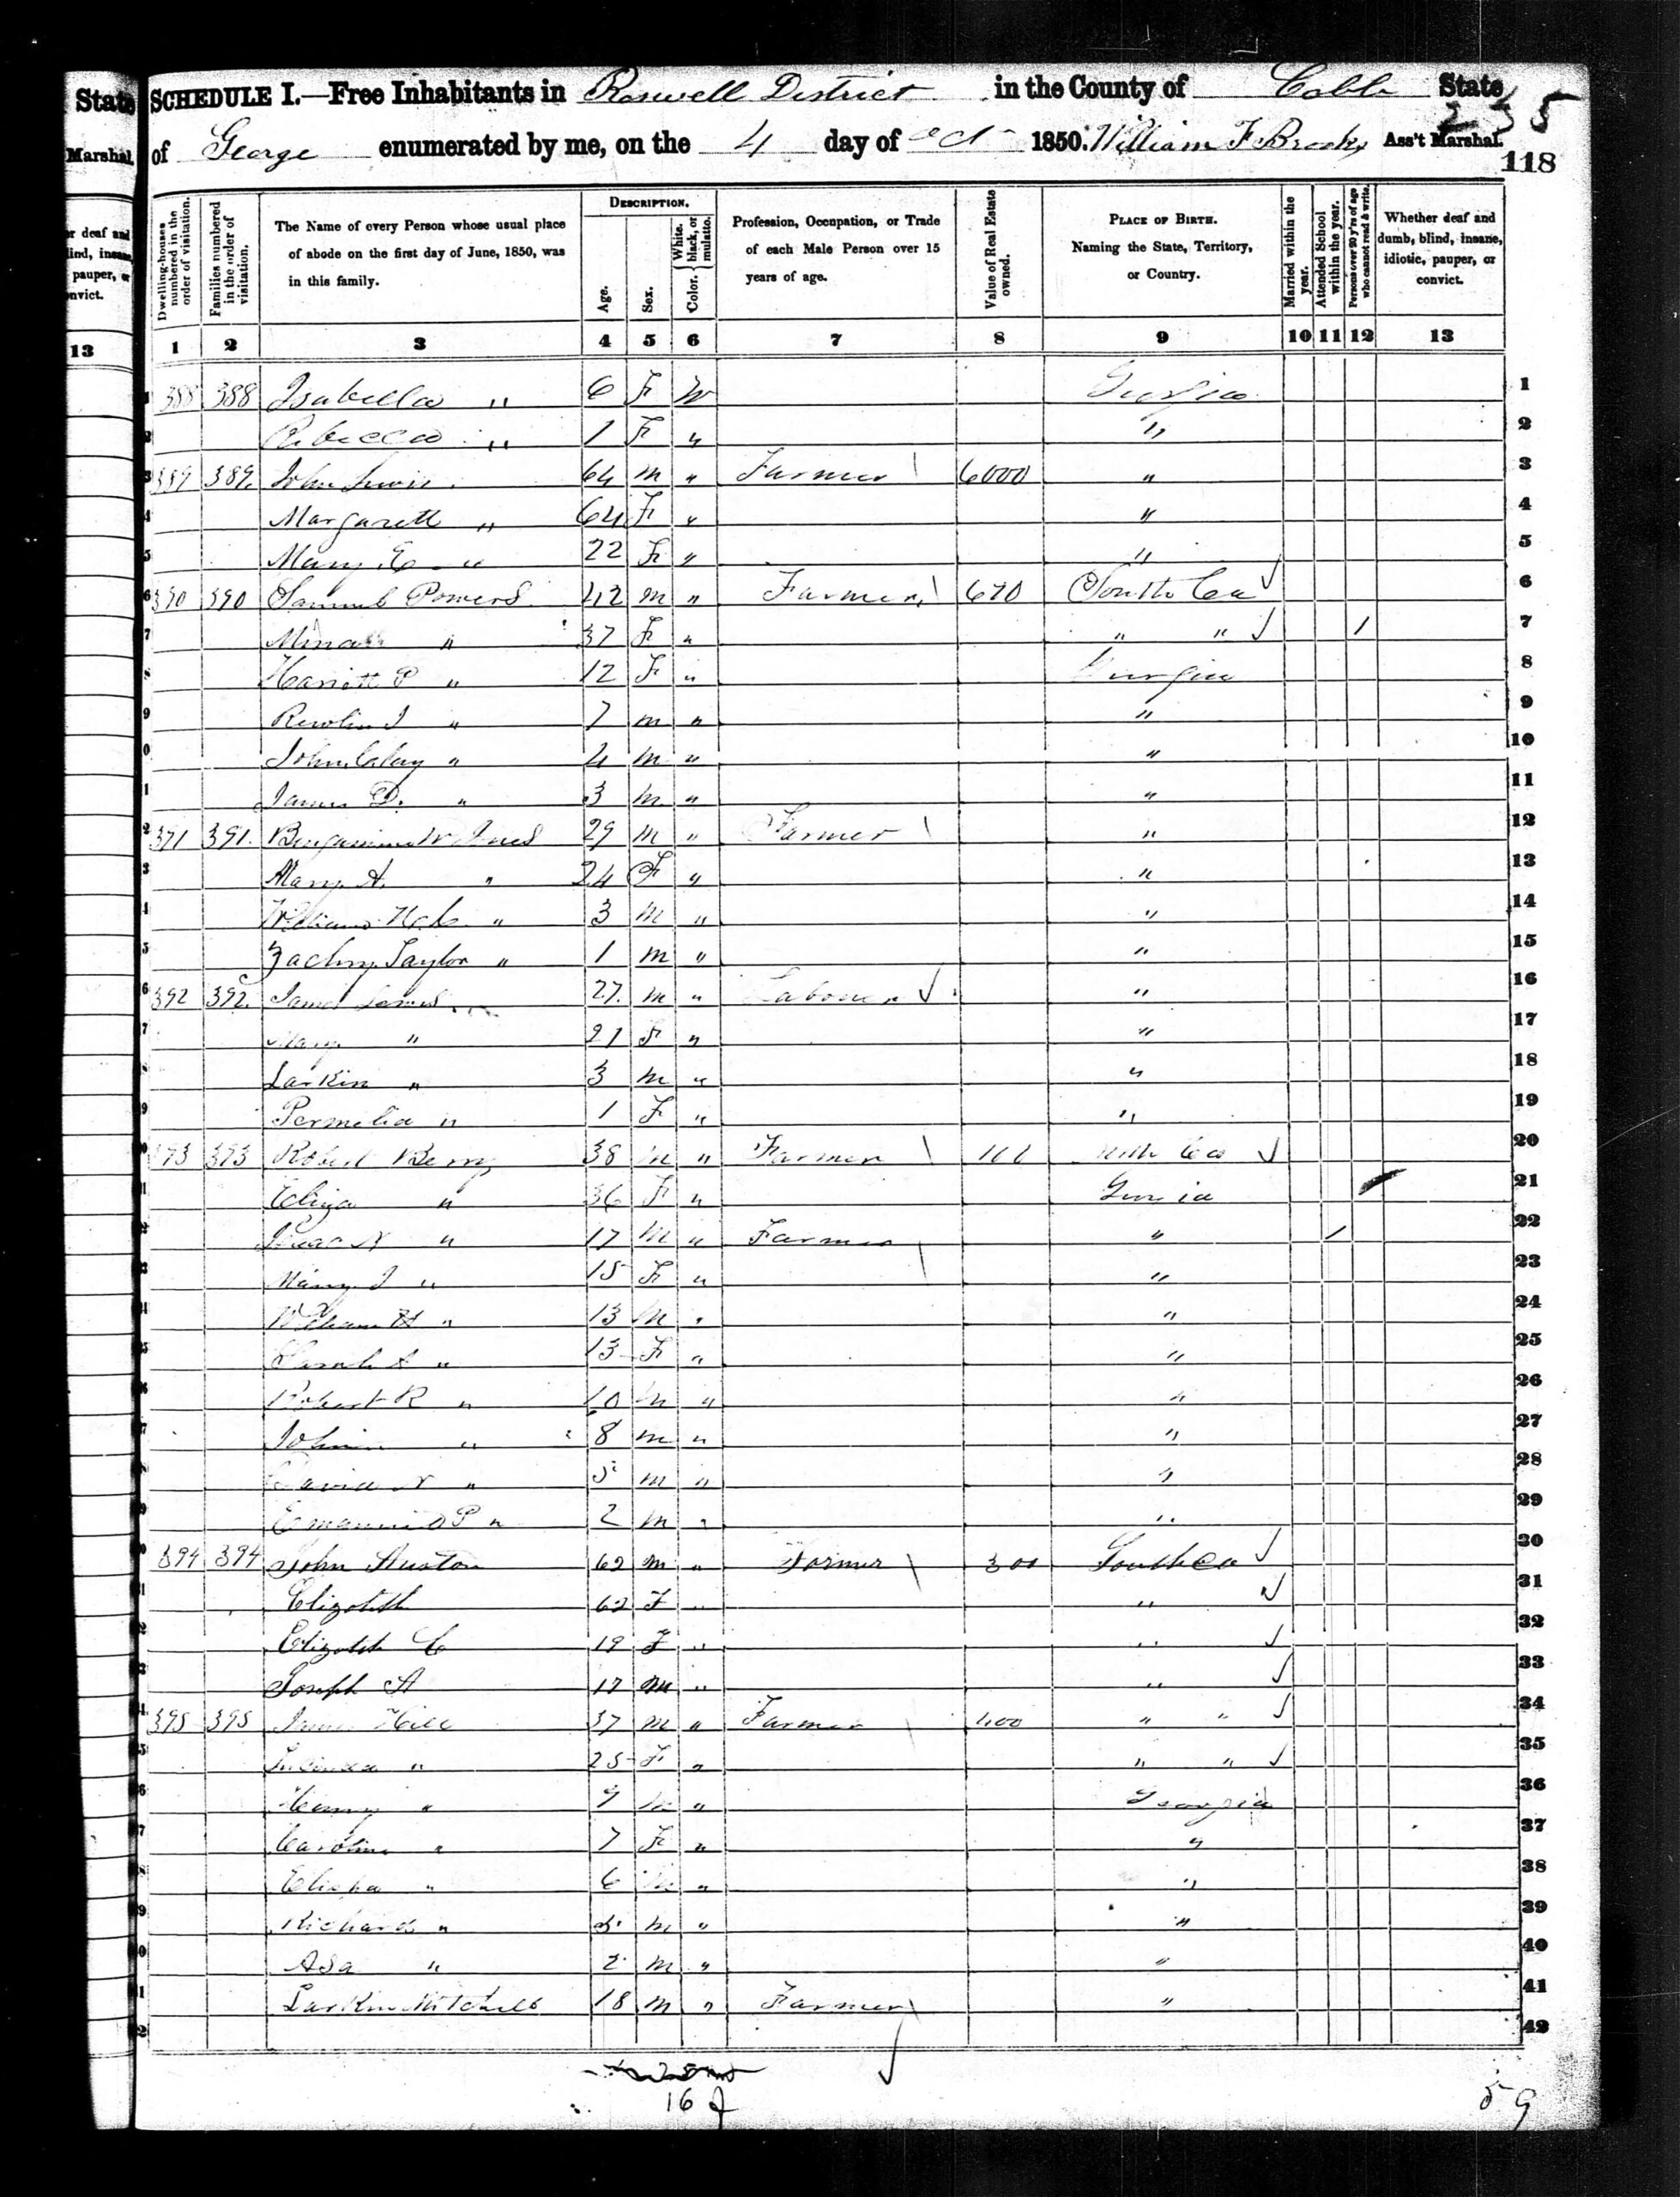 State
Marshal.
r deaf and
lind, insane,
pauper, or
nvict.
13
SCHEDULE I.—Free Inhabitants in Roswell District in the County of Cobb State
235
of George enumerated by me, on the 4 day of Oct 1850. William F Brooks Ass't Marshal.
118
Dwelling-houses numbered in the order of visitation.
Families numbered in the order of visitation.
The Name of every Person whose usual place of abode on the first day of June, 1850, was in this family.
DESCRIPTION.
Age.
Sex.
Color. { White, black, or mulatto.
Profession, Occupation, or Trade of each Male Person over 15 years of age.
Value of Real Estate owned.
PLACE OF BIRTH. Naming the State, Territory, or Country.
Married within the year.
Attended School within the year.
Persons over 20 y'rs of age who cannot read & write.
Whether deaf and dumb, blind, insane, idiotic, pauper, or convict.
1 2 3 4 5 6 7 8 9 10 11 12 13
388 388 Isabella " 6 F W Georgia 1
Rebecca " 1 F " " 2
389 389 John Lewis 64 m " Farmer 6000 " 3
Margarett " 64 F " " 4
Mary E " 22 F " " 5
390 390 Samuel Powers 42 m " Farmer 670 South Ca 6
" 37 F " " " / 7
Harriett P " 12 F " Georgia 8
" 7 m " " 9
John Calny " 4 m " " 10
James D. " 3 m " " 11
391 391 Benjamin W Jones 29 m " Farmer " 12
Mary A. " 24 F " " 13
William " 3 m " " 14
Zachry Taylor " 1 m " " 15
392 392 James Lewis 27 m " Laborer " 16
Mary " 21 F " " 17
Larkin " 3 m " " 18
Permelia " 1 F " " 19
393 393 Robert Berry 38 m " Farmer Ca 20
Eliza " 36 F " Georgia / 21
Isaac N " 17 M " Farmer " / 22
Mary J " 15 F " " 23
William H " 13 M " " 24
Sarah A " 13 F " " 25
Robert R " 10 m " " 26
John " 8 m " " 27
David N " 5 m " " 28
P " 2 m " " 29
394 394 John Huston 62 m " Farmer 300 South Ca 30
Elizabeth 62 F " " 31
Elizabeth C 19 F " " 32
Joseph A 17 m " " 33
395 395 James Hill 37 m " Farmer 400 " " 34
" 25 F " " " 35
Henry " 9 m " Georgia 36
Caroline " 7 F " " 37
Elisha " 6 m " " 38
Richard " m " " 39
Asa " 2 m " " 40
Larkin Mitchell 18 m " Farmer " 41
42
16 f
59